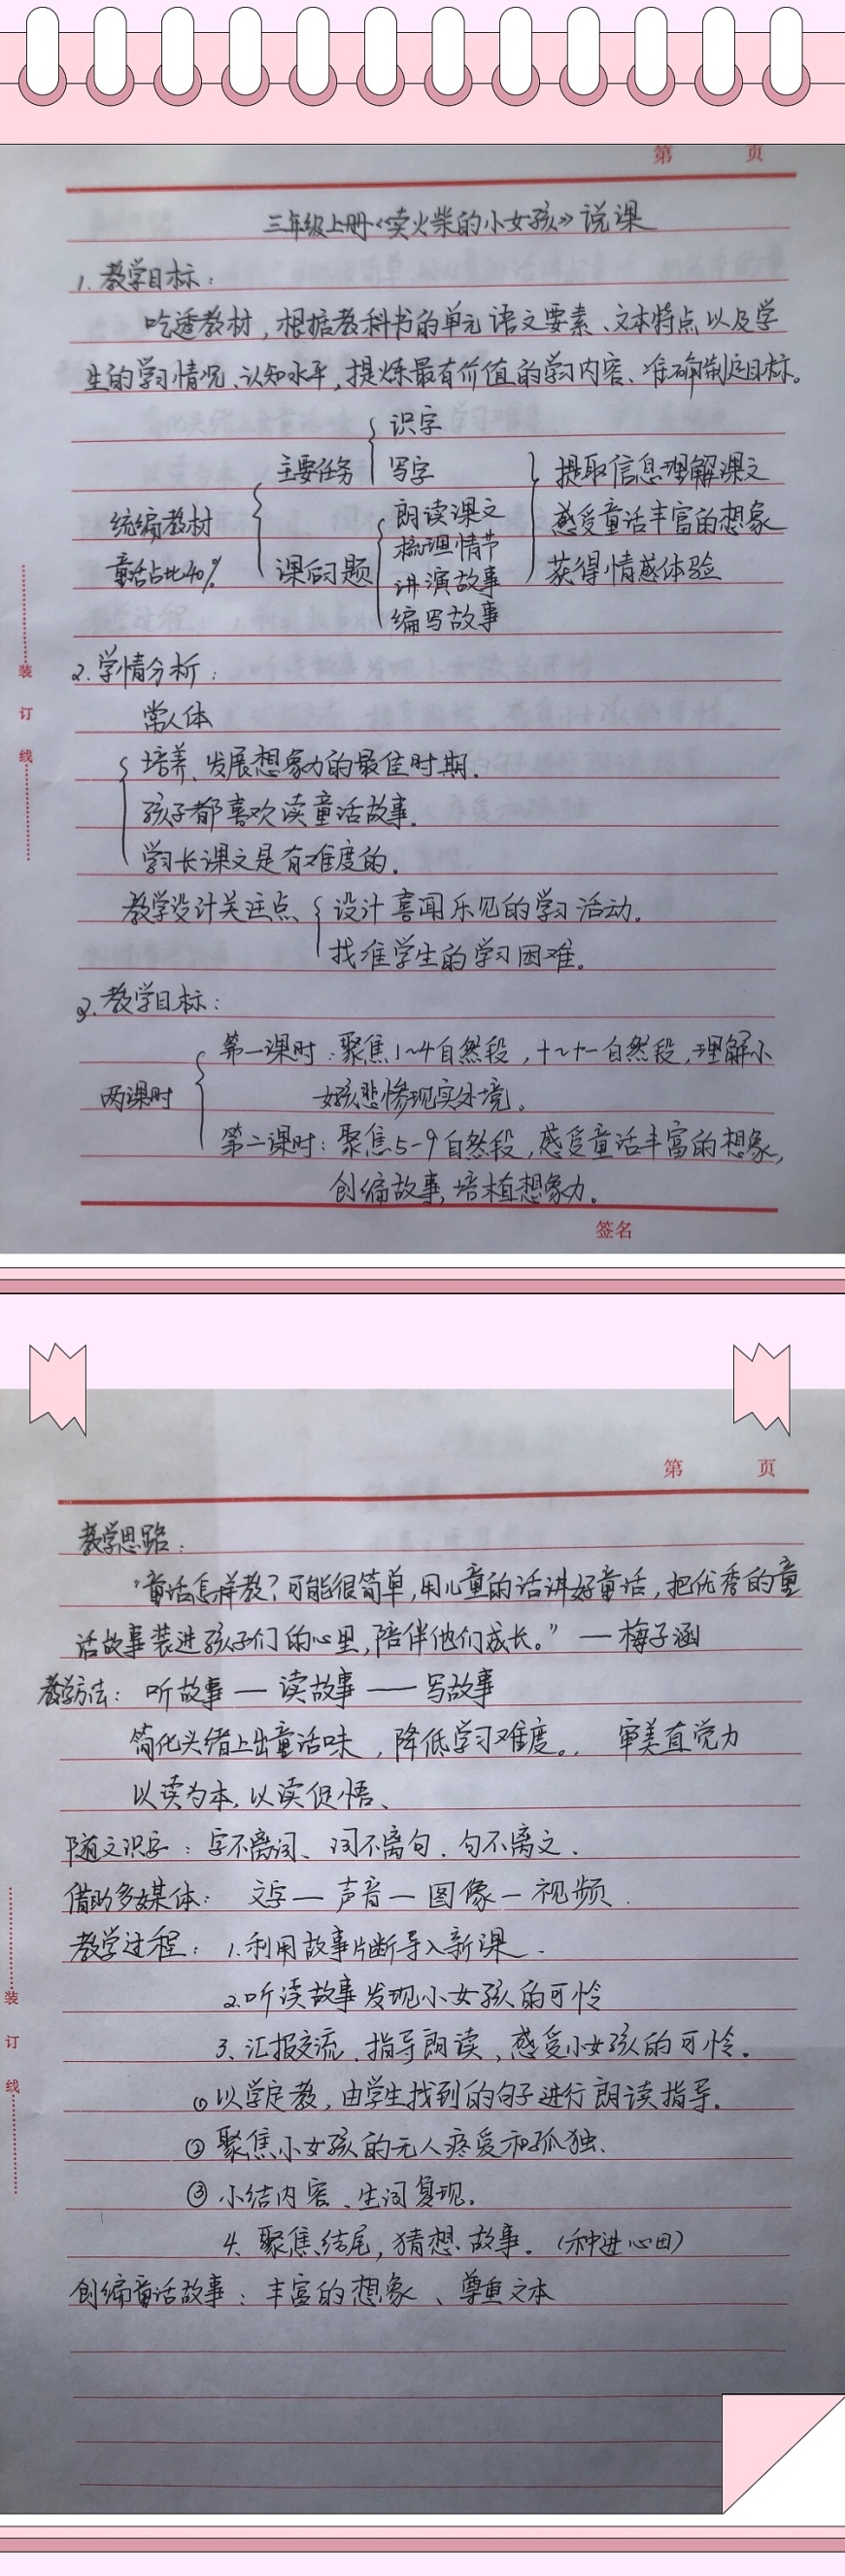 第 页
三年级上册《卖火柴的小女孩》说课
1. 教学目标：
吃透教材，根据教科书的单元语文要素、文本特点以及学
生的学习情况、认知水平，提炼最有价值的学习内容、准确制定目标。
识字
主要任务 写字 提取信息理解课文
统编教材 朗读课文 感受童话丰富的想象
梳理情节
童话占比40% 课后习题 讲演故事 获得情感体验
编写故事
2. 学情分析：
常人体
培养、发展想象力的最佳时期.
孩子都喜欢读童话故事.
学习长课文是有难度的.
教学设计关注点 设计喜闻乐见的学习活动.
找准学生的学习困难.
3. 教学目标：
第一课时：聚焦1~4自然段，十~十一自然段，理解小
两课时 女孩悲惨现实处境。
第二课时：聚焦5-9自然段，感受童话丰富的想象，
创编故事，培植想象力。
签名
装
订
线
第 页
教学思路：
“童话怎样教？可能很简单，用儿童的话讲好童话，把优秀的童
话故事装进孩子们的心里，陪伴他们成长。”—梅子涵
教学方法：听故事—读故事——写故事
简化头绪上出童话味，降低学习难度。. 审美直觉力
以读为本，以读促悟、
随文识字：字不离词、词不离句．句不离文．
借助多媒体：文字—声音—图像—视频．
教学过程：1.利用故事片断导入新课．
2.听读故事发现小女孩的可怜
3、汇报交流．指导朗读，感受小女孩的可怜。
①以学定教，由学生找到的句子进行朗读指导。
②聚焦小女孩的无人疼爱和孤独、
③小结内容、生词复现。
4、聚焦结尾，猜想故事。（种进心田）
创编童话故事：丰富的想象、尊重文本
装
订
线